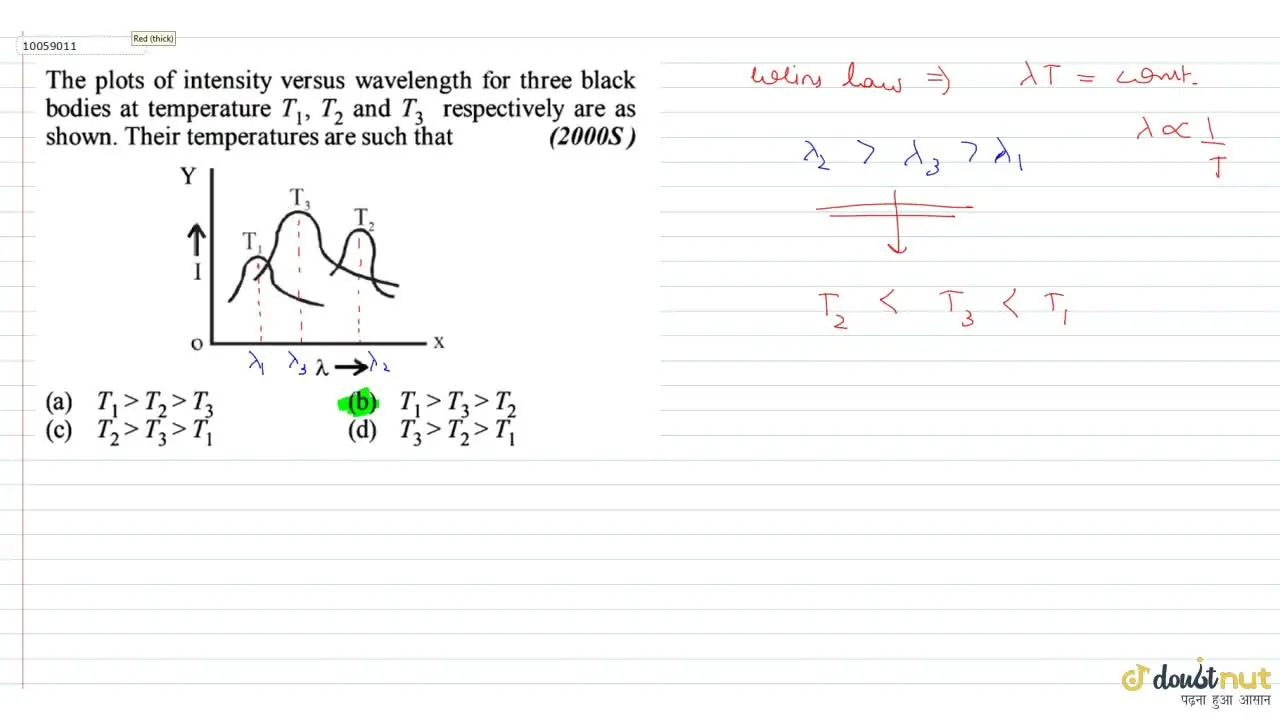 10059011
Red (thick)
The plots of intensity versus wavelength for three black
bodies at temperature T₁, T₂ and T₃ respectively are as
shown. Their temperatures are such that (2000S)
Y
T₃
T₂
T₁
I
O
X
λ₁ λ₃ λ → λ₂
(a) T₁ > T₂ > T₃ (b) T₁ > T₃ > T₂
(c) T₂ > T₃ > T₁ (d) T₃ > T₂ > T₁
weins law ⇒ λT = const.
λ ∝ 1/T
λ₂ > λ₃ > λ₁
T₂ < T₃ < T₁
doubtnut
पढ़ना हुआ आसान